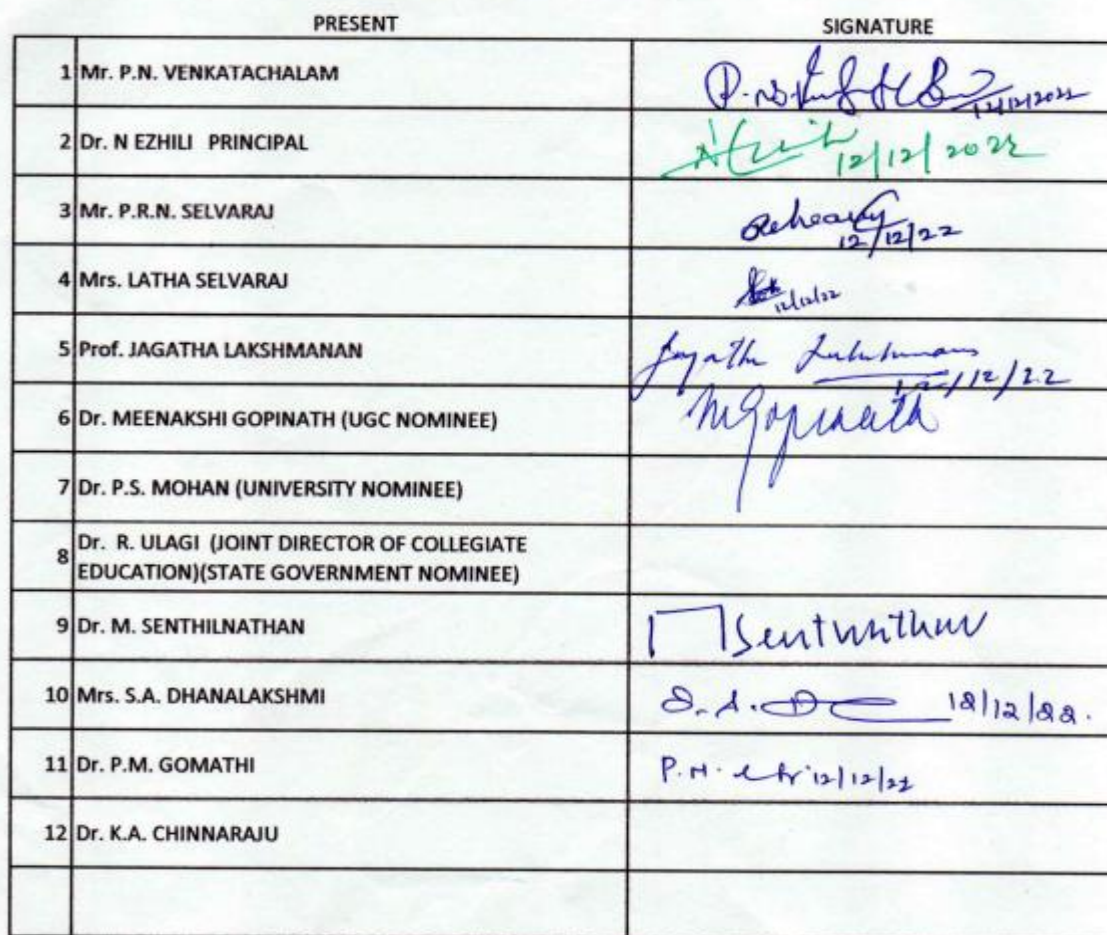 PRESENT SIGNATURE
1 Mr. P.N. VENKATACHALAM 12/12/2022
2 Dr. N EZHILI PRINCIPAL 12/12/2022
3 Mr. P.R.N. SELVARAJ 12/12/22
4 Mrs. LATHA SELVARAJ 12/12/22
5 Prof. JAGATHA LAKSHMANAN Jagatha Lakshmanan 12/12/22
6 Dr. MEENAKSHI GOPINATH (UGC NOMINEE) MGopinath
7 Dr. P.S. MOHAN (UNIVERSITY NOMINEE)
8 Dr. R. ULAGI (JOINT DIRECTOR OF COLLEGIATE
EDUCATION)(STATE GOVERNMENT NOMINEE)
9 Dr. M. SENTHILNATHAN
10 Mrs. S.A. DHANALAKSHMI 12/12/22.
11 Dr. P.M. GOMATHI P.M. 12/12/22
12 Dr. K.A. CHINNARAJU